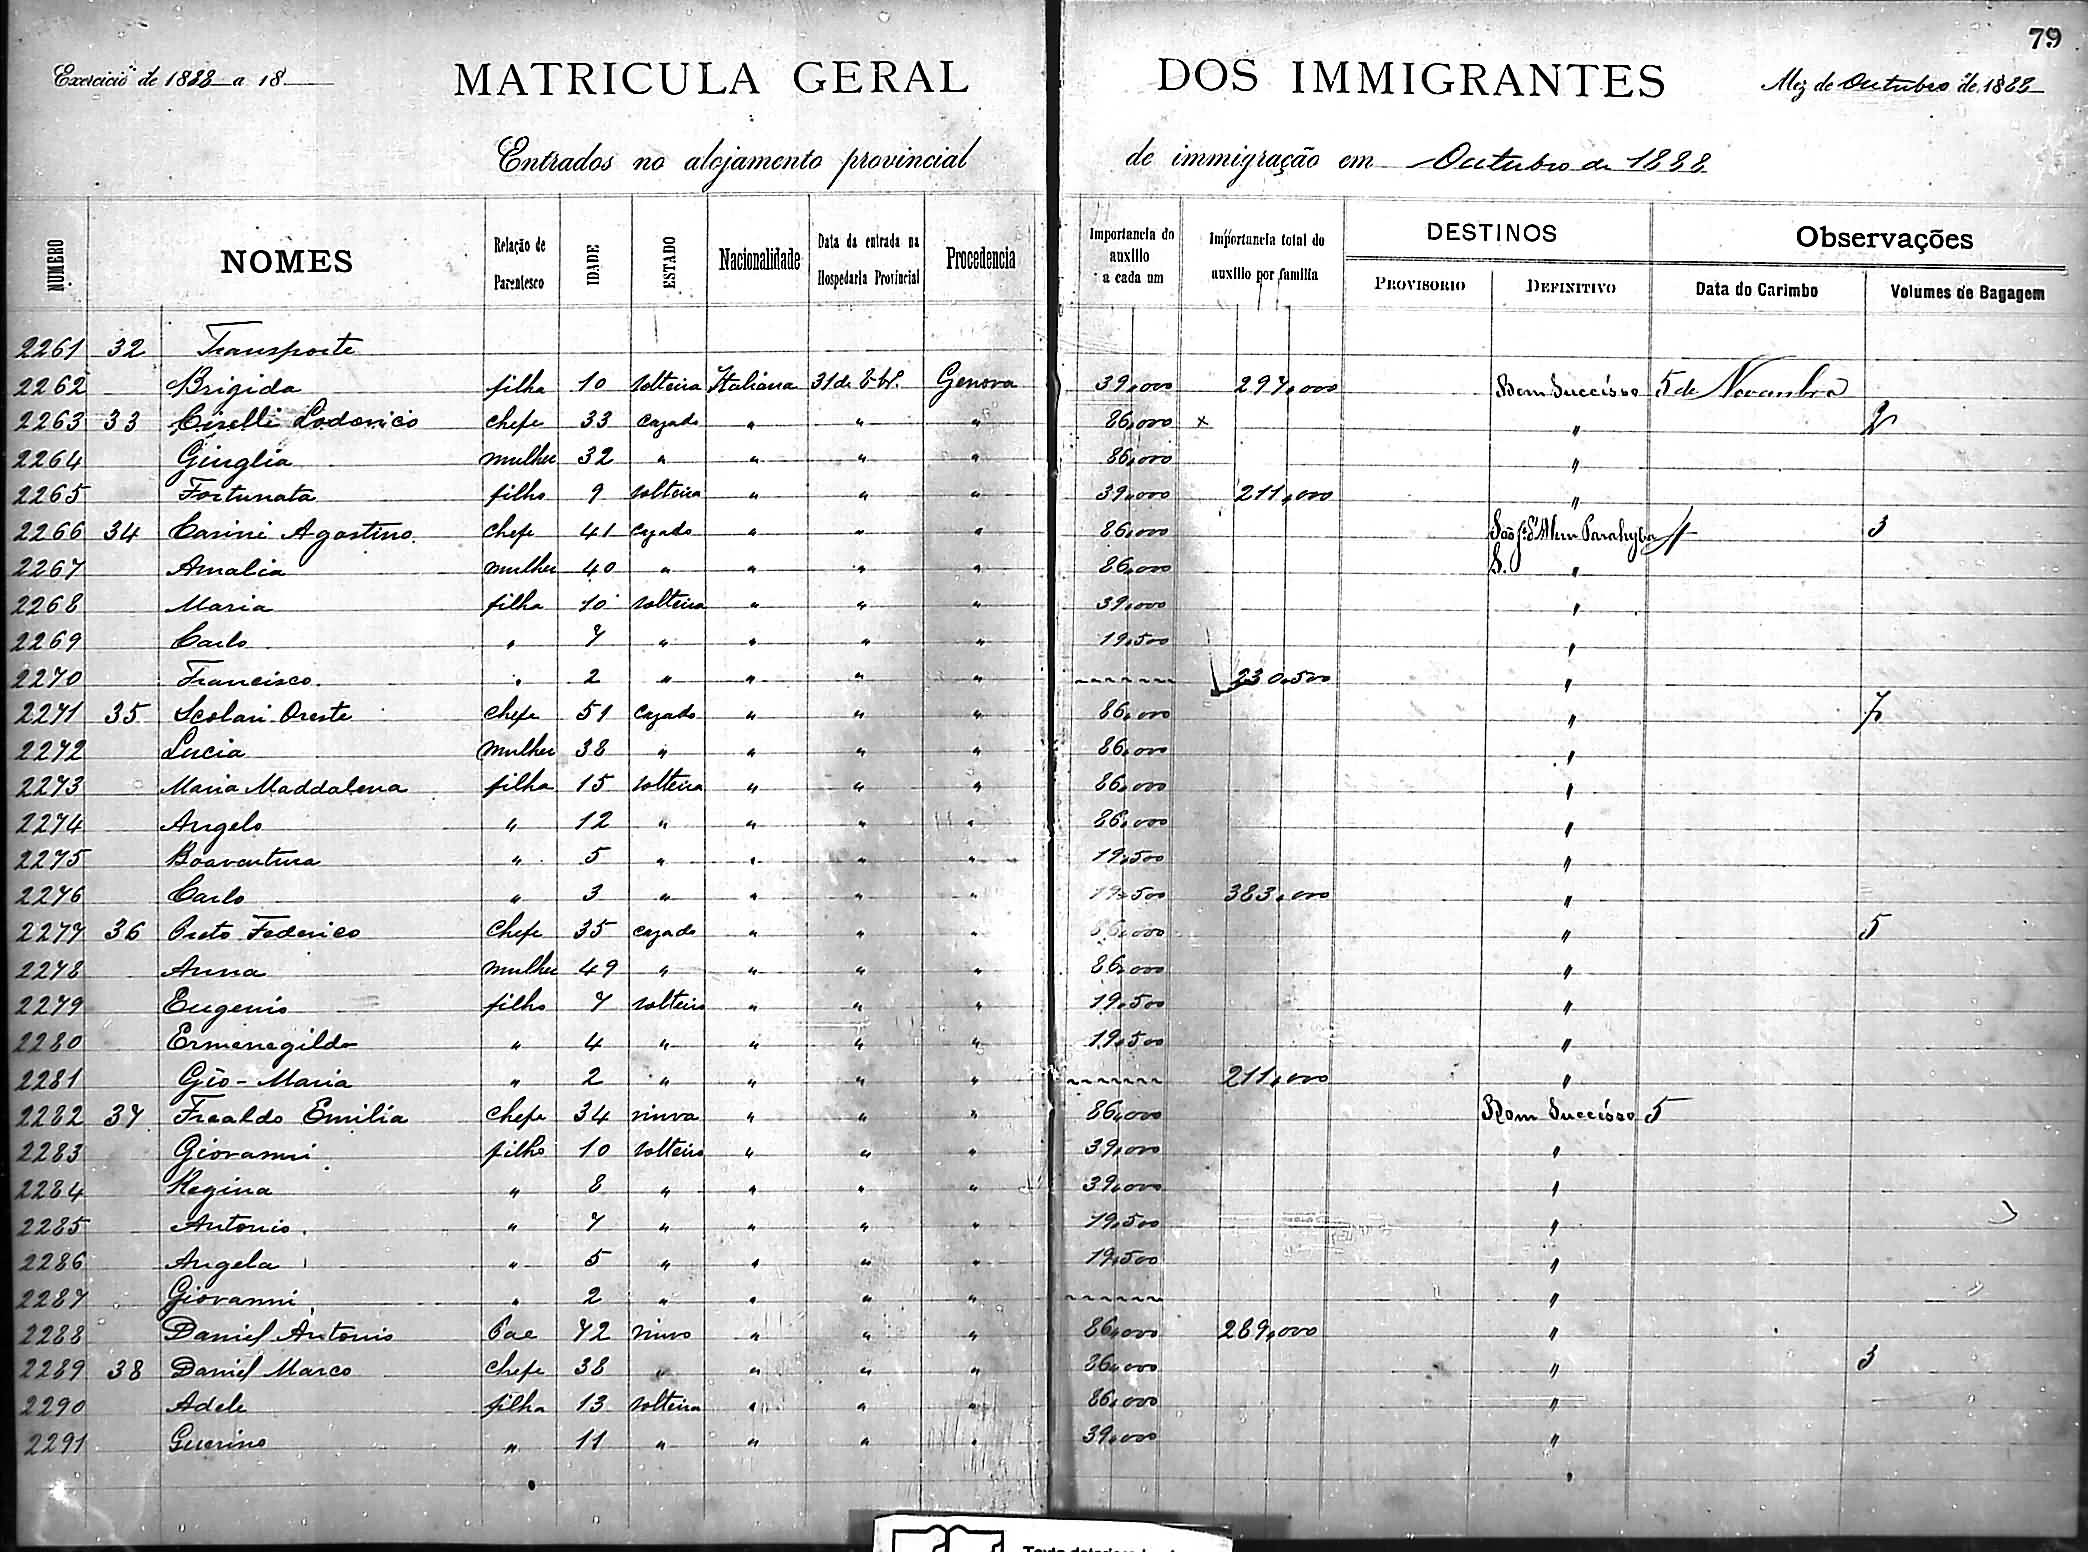 79
Exercicio de 1888 a 18
MATRICULA GERAL DOS IMMIGRANTES
Mez de Outubro de 1888
Entrados no alojamento provincial de immigração em Outubro de 1888
NUMERO NOMES Relação de Parentesco IDADE ESTADO Nacionalidade Data da entrada na Hospedaria Provincial Procedencia Importancia do auxilio a cada um Importancia total do auxilio por familia DESTINOS PROVISORIO DEFINITIVO Observações Data do Carimbo Volumes de Bagagem
2261 32 Transporte
2262 Brigida filha 10 solteira Italiana 31 de 8br. Genova 39,000 297,000 Bom Successo 5 de Novembro
2263 33 Ciselli Lodovico chefe 33 cazado " " " 86,000 x " 2
2264 Giuglia mulher 32 " " " " 86,000 "
2265 Fortunata filha 9 solteira " " " 39,000 211,000 "
2266 34 Carini Agostino chefe 41 cazado " " " 86,000 São J. d'Alem Parahyba 4 3
2267 Amalia mulher 40 " " " " 86,000 S. "
2268 Maria filha 10 solteira " " " 39,000 "
2269 Carlo " 7 " " " " 19,500 "
2270 Francisco " 2 " " " " 230,500 "
2271 35 Scolari Oreste chefe 51 cazado " " " 86,000 " 7
2272 Lucia mulher 38 " " " " 86,000 "
2273 Maria Maddalena filha 15 solteira " " " 86,000 "
2274 Angelo " 12 " " " " 86,000 "
2275 Boaventura " 5 " " " " 19,500 "
2276 Carlo " 3 " " " " 19,500 383,000 "
2277 36 Federico Chefe 35 cazado " " " 86,000 " 5
2278 Anna mulher 49 " " " " 86,000 "
2279 Eugenio filho 7 solteiro " " " 19,500 "
2280 Ermenegildo " 4 " " " " 19,500 "
2281 Gio-Maria " 2 " " " " 211,000 "
2282 37 Emilia Chefe 34 viuva " " " 86,000 Bom Successo 5
2283 Giovanni filho 10 solteiro " " " 39,000 "
2284 Regina " 8 " " " " 39,000 "
2285 Antonio " 7 " " " " 19,500 "
2286 Angela " 5 " " " " 19,500 "
2287 Giovanni " 2 " " " " "
2288 Daniel Antonio Pae 72 viuvo " " " 86,000 289,000 "
2289 38 Daniel Marco chefe 38 " " " " 86,000 " 3
2290 Adele filha 13 solteira " " " 86,000 "
2291 Guerino " 11 " " " " 39,000 "